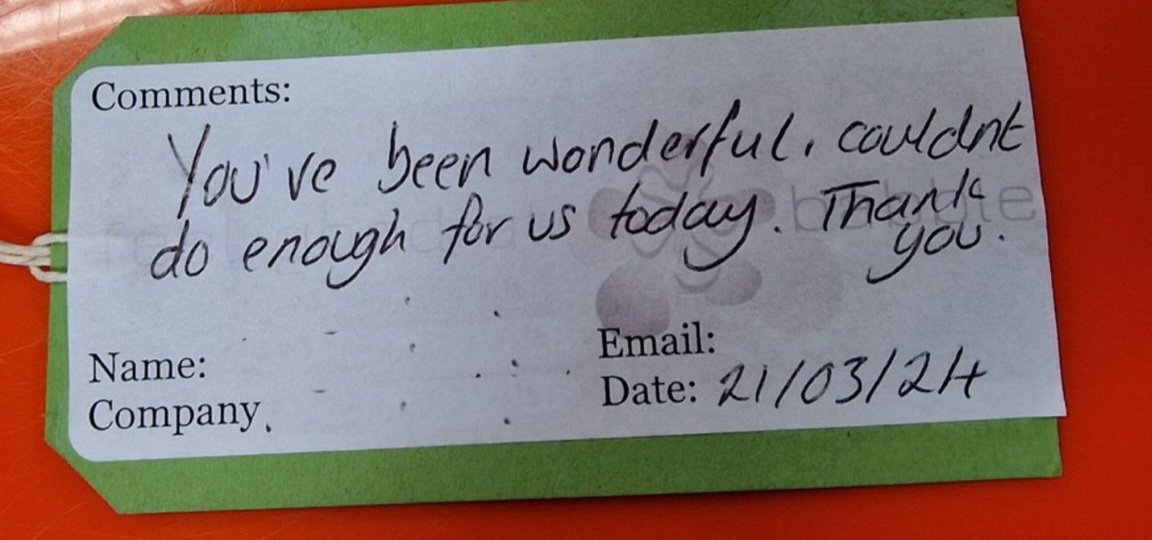 Comments:
You've been wonderful, couldnt
do enough for us today. Thank
you.
Name:
Company
Email:
Date: 21/03/24